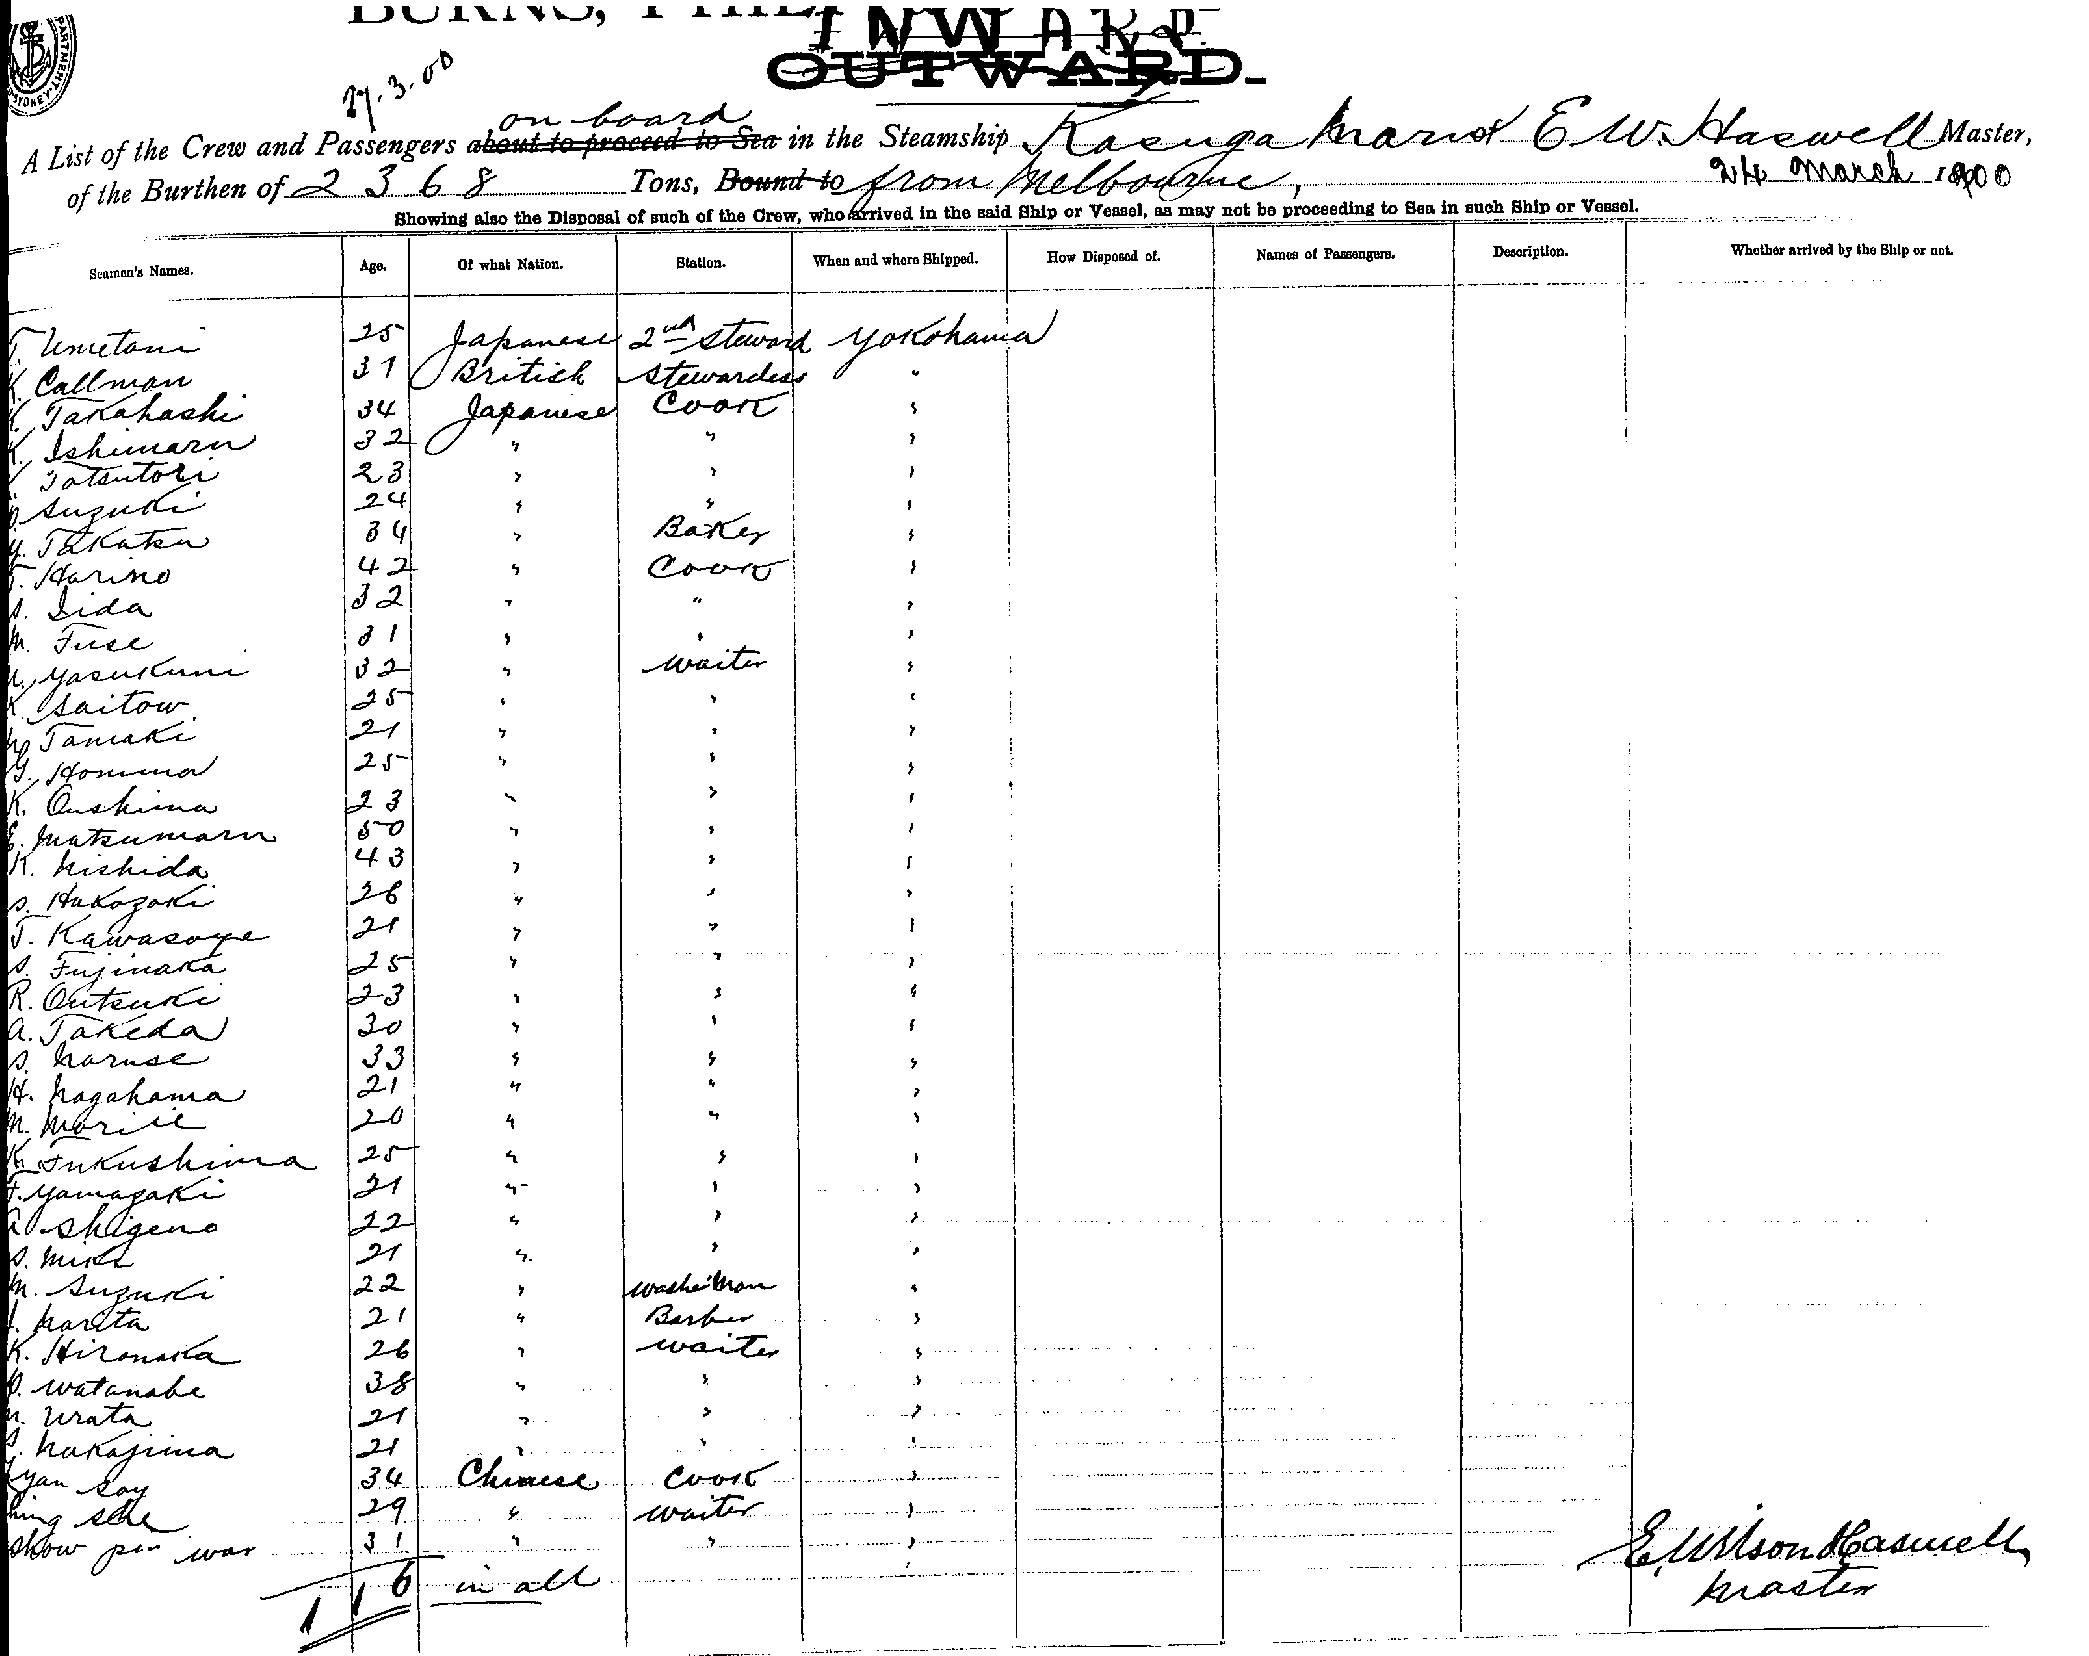 BURNS, PHILP
INWARD
OUTWARD.
27.3.00
on board
A List of the Crew and Passengers about to proceed to Sea in the Steamship Kasuga Maru E W. Haswell Master,
of the Burthen of 2368 Tons, Bound to from Melbourne, 24 March 1900
Showing also the Disposal of such of the Crew, who arrived in the said Ship or Vessel, as may not be proceeding to Sea in such Ship or Vessel.
Seamen's Names. Age. Of what Nation. Station. When and where Shipped. How Disposed of. Names of Passengers. Description. Whether arrived by the Ship or not.
T. Umetani 25 Japanese 2nd Steward Yokohama
K. Callman 37 British Stewardess "
Takahashi 34 Japanese Cook "
K. Ishimaru 32 " " "
Tatsutori 23 " " "
Suzuki 24 " " "
Y. Takatsu 34 " Baker "
T. Harino 42 " Cook "
S. Iida 32 " " "
M. Fuse 31 " " "
Yasukuni 32 " Waiter "
K. Saitow 25 " " "
Tamaki 21 " " "
G. Homma 25 " " "
K. Oushima 23 " " "
E. Matsumaru 50 " " "
K. Nishida 43 " " "
S. Hakozaki 26 " " "
T. Kawasoye 21 " " "
S. Fujinaka 25 " " "
R. Outsuki 23 " " "
A. Takeda 30 " " "
S. Naruse 33 " " "
H. Nagahama 21 " " "
M. Moriie 20 " " "
K. Fukushima 25 " " "
T. Yamagaki 21 " " "
Shigeno 22 " " "
S. Miki 21 " " "
M. Suzuki 22 " Washerman "
Narita 21 " Barber "
K. Hironaka 26 " Waiter "
Watanabe 38 " " "
Urata 21 " " "
Nakajima 21 " " "
Yan Soy 34 Chinese Cook "
29 " Waiter "
31 " " "
116 in all
E. Wilson Haswell
Master